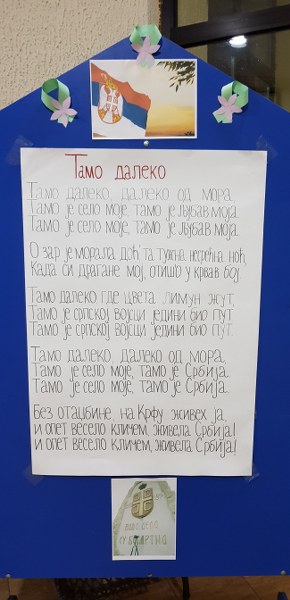 Тамо далеко
Тамо далеко, далеко од мора,
Тамо је село моје, тамо је љубав моја.
Тамо је село моје, тамо је љубав моја.
О зар је морала доћ' та тужна несрећна ноћ,
Када си драгане мој, отишо у крвав бој
Тамо далеко где цвета лимун жут,
Тамо је српској војсци једини био пут.
Тамо је српској војсци једини био пут.
Тамо далеко, далеко од мора,
Тамо је село моје, тамо је Србија.
Тамо је село моје, тамо је Србија.
Без отаџбине, на Крфу живех ја,
и опет весело кличем, живела Србија!
и опет весело кличем, живела Србија!